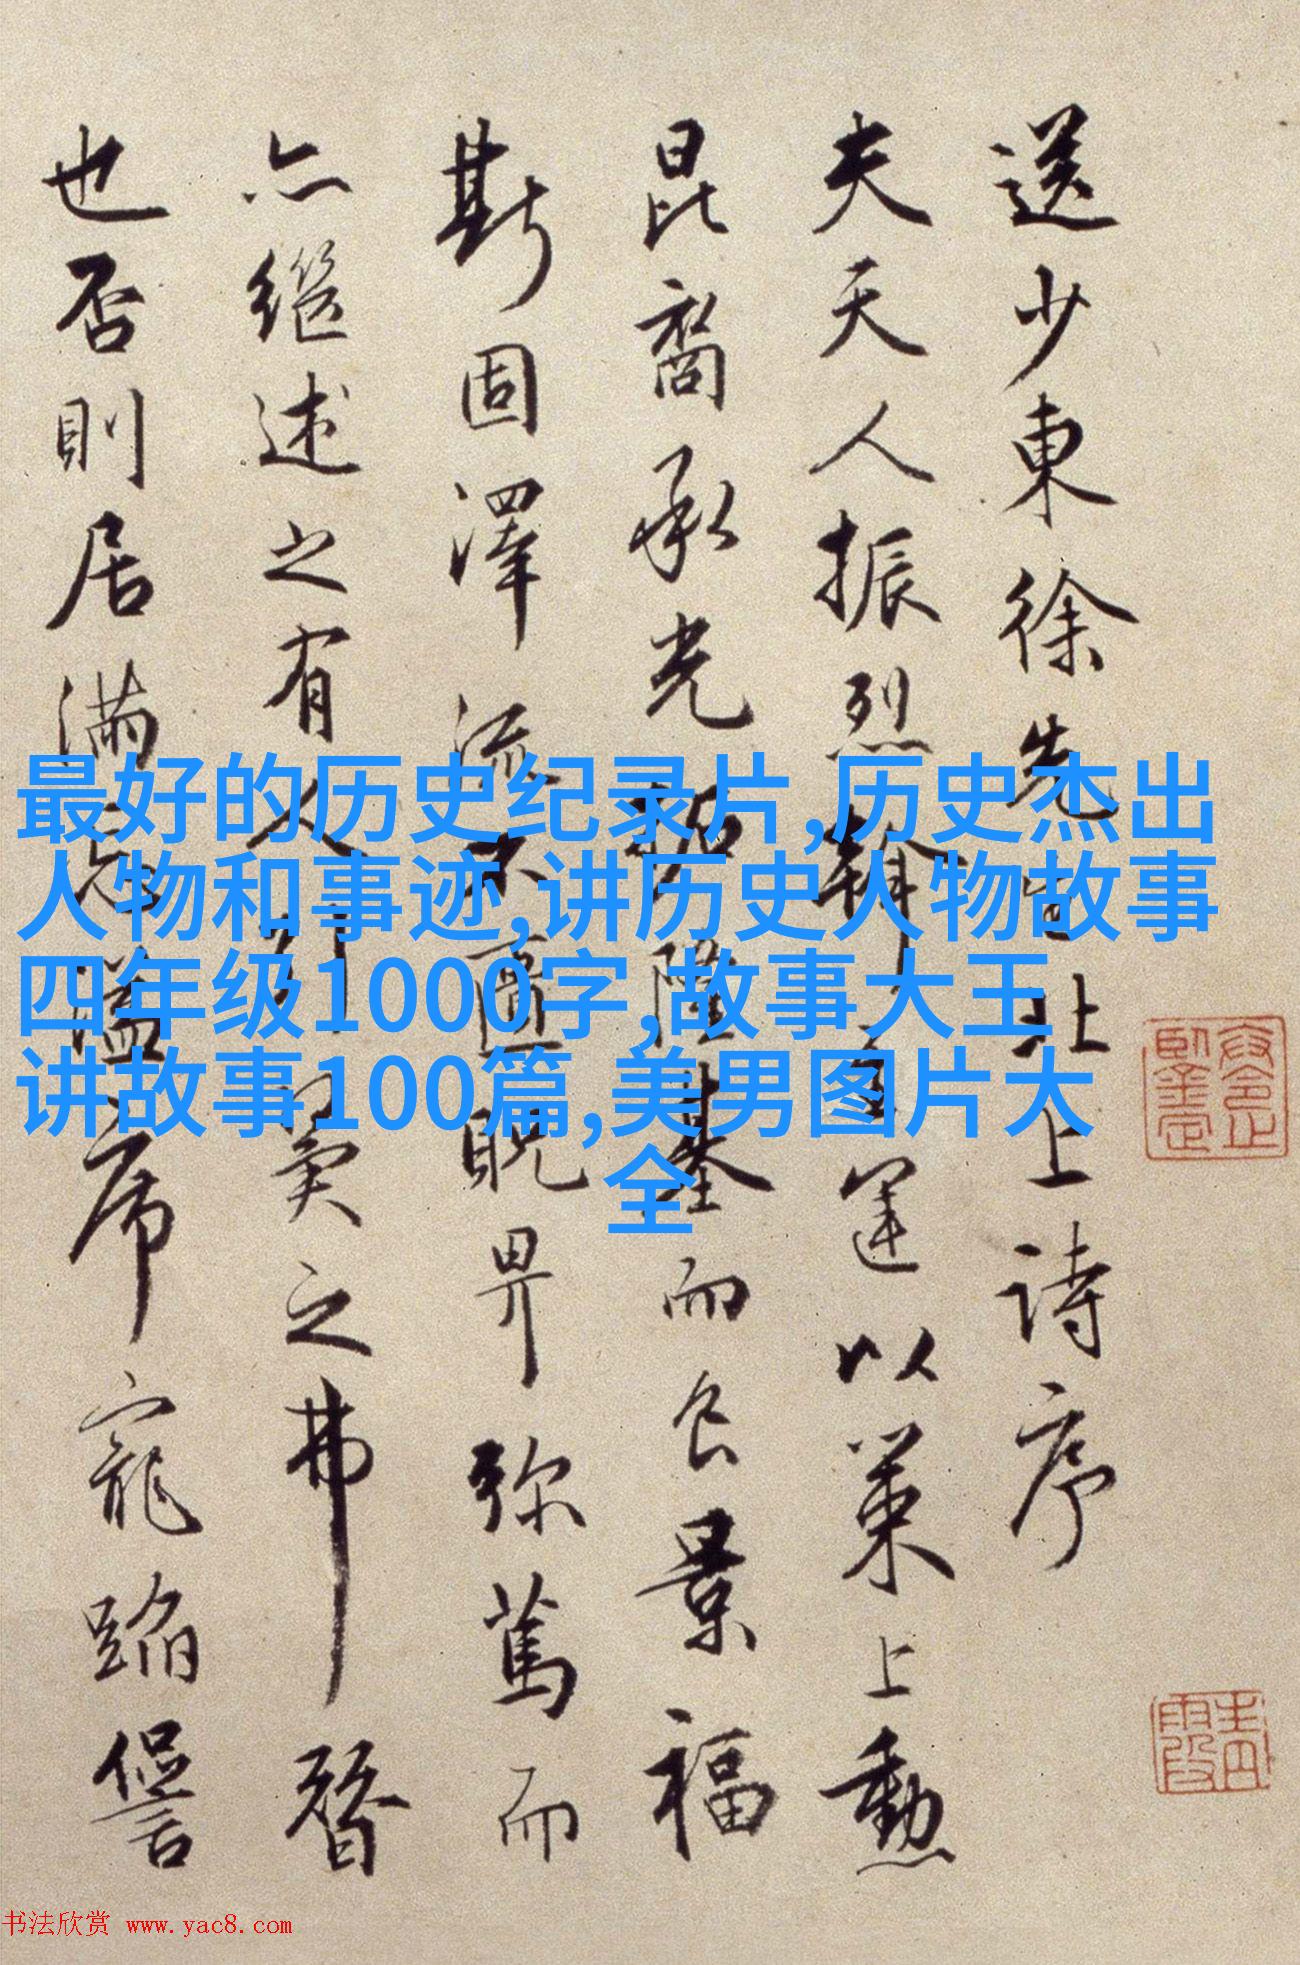 送少東徐先生北上詩序
夫天人振烈 運以策上勳
昆裔承光 隆基而食景福
斯固澤流不匱貺畀弥篤而
亦繼述之有人引翼之弗替
也否則居滿 溢席寵蹈
最好的历史纪录片,历史杰出
人物和事迹,讲历史人物故事
四年级1000字,故事大王
讲故事100篇,美男图片大
全
书法欣赏 www.yac8.com